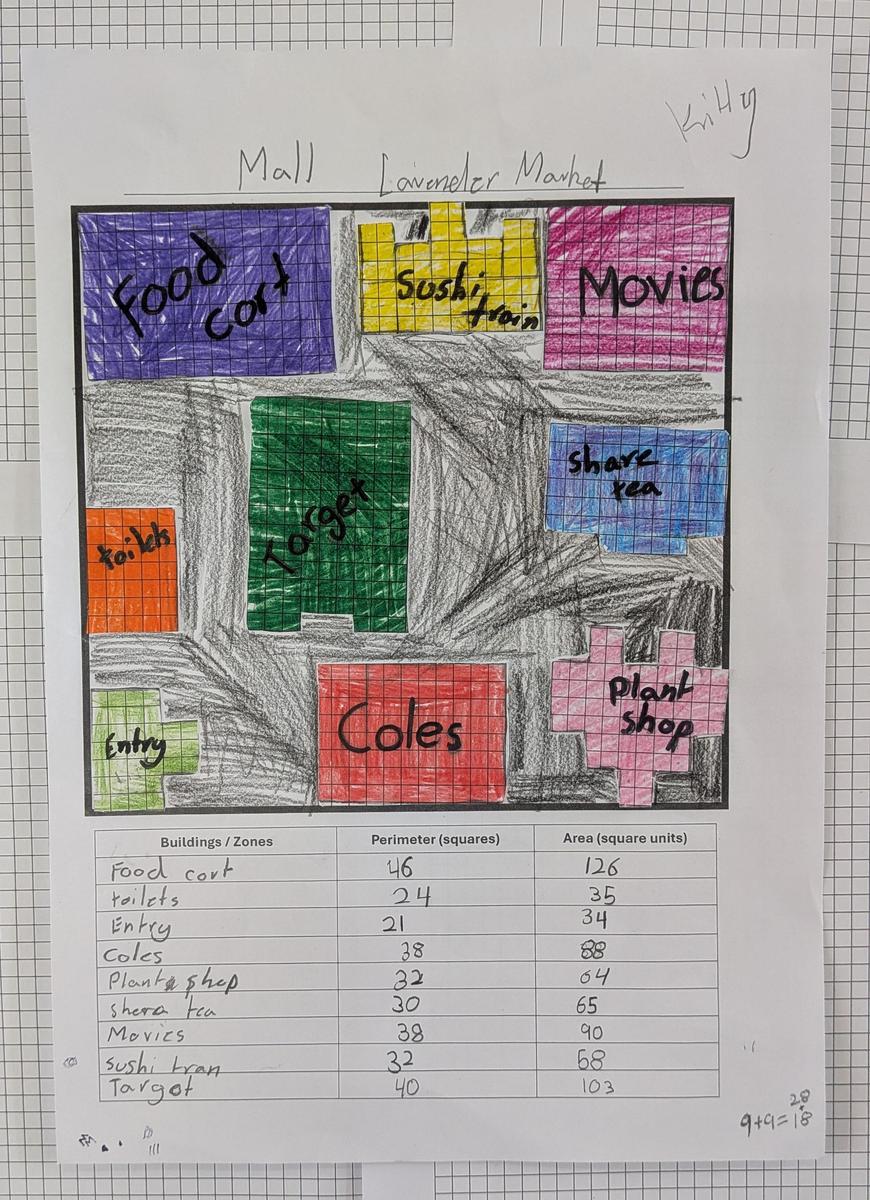 Kritty
Mall Lavender Market
Food cort
Sushi train
Movies
Target
share tea
toilets
Plant shop
Entry
Coles
Buildings / Zones Perimeter (squares) Area (square units)
Food cort 46 126
toilets 24 35
Entry 21 34
Coles 38 88
Plant shop 32 64
shera tea 30 65
Movies 38 90
sushi tran 32 68
Target 40 103
28
9+9=18